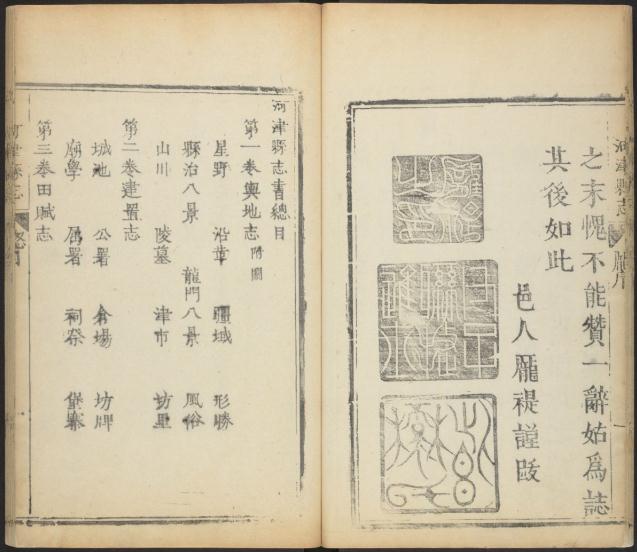 河津縣志
之末愧不能贊一辭姑爲誌
其後如此
邑人龐禔謹跋
河津縣志書總目
第一卷輿地志 附圖
星野 沿革 疆域 形勝
縣治八景 龍門八景 風俗
山川 陵墓 津市 坊里
第二卷建置志
城池 公署 倉場 坊牌
廟學 屬署 祠祭 堡寨
第三卷田賦志
河津縣志